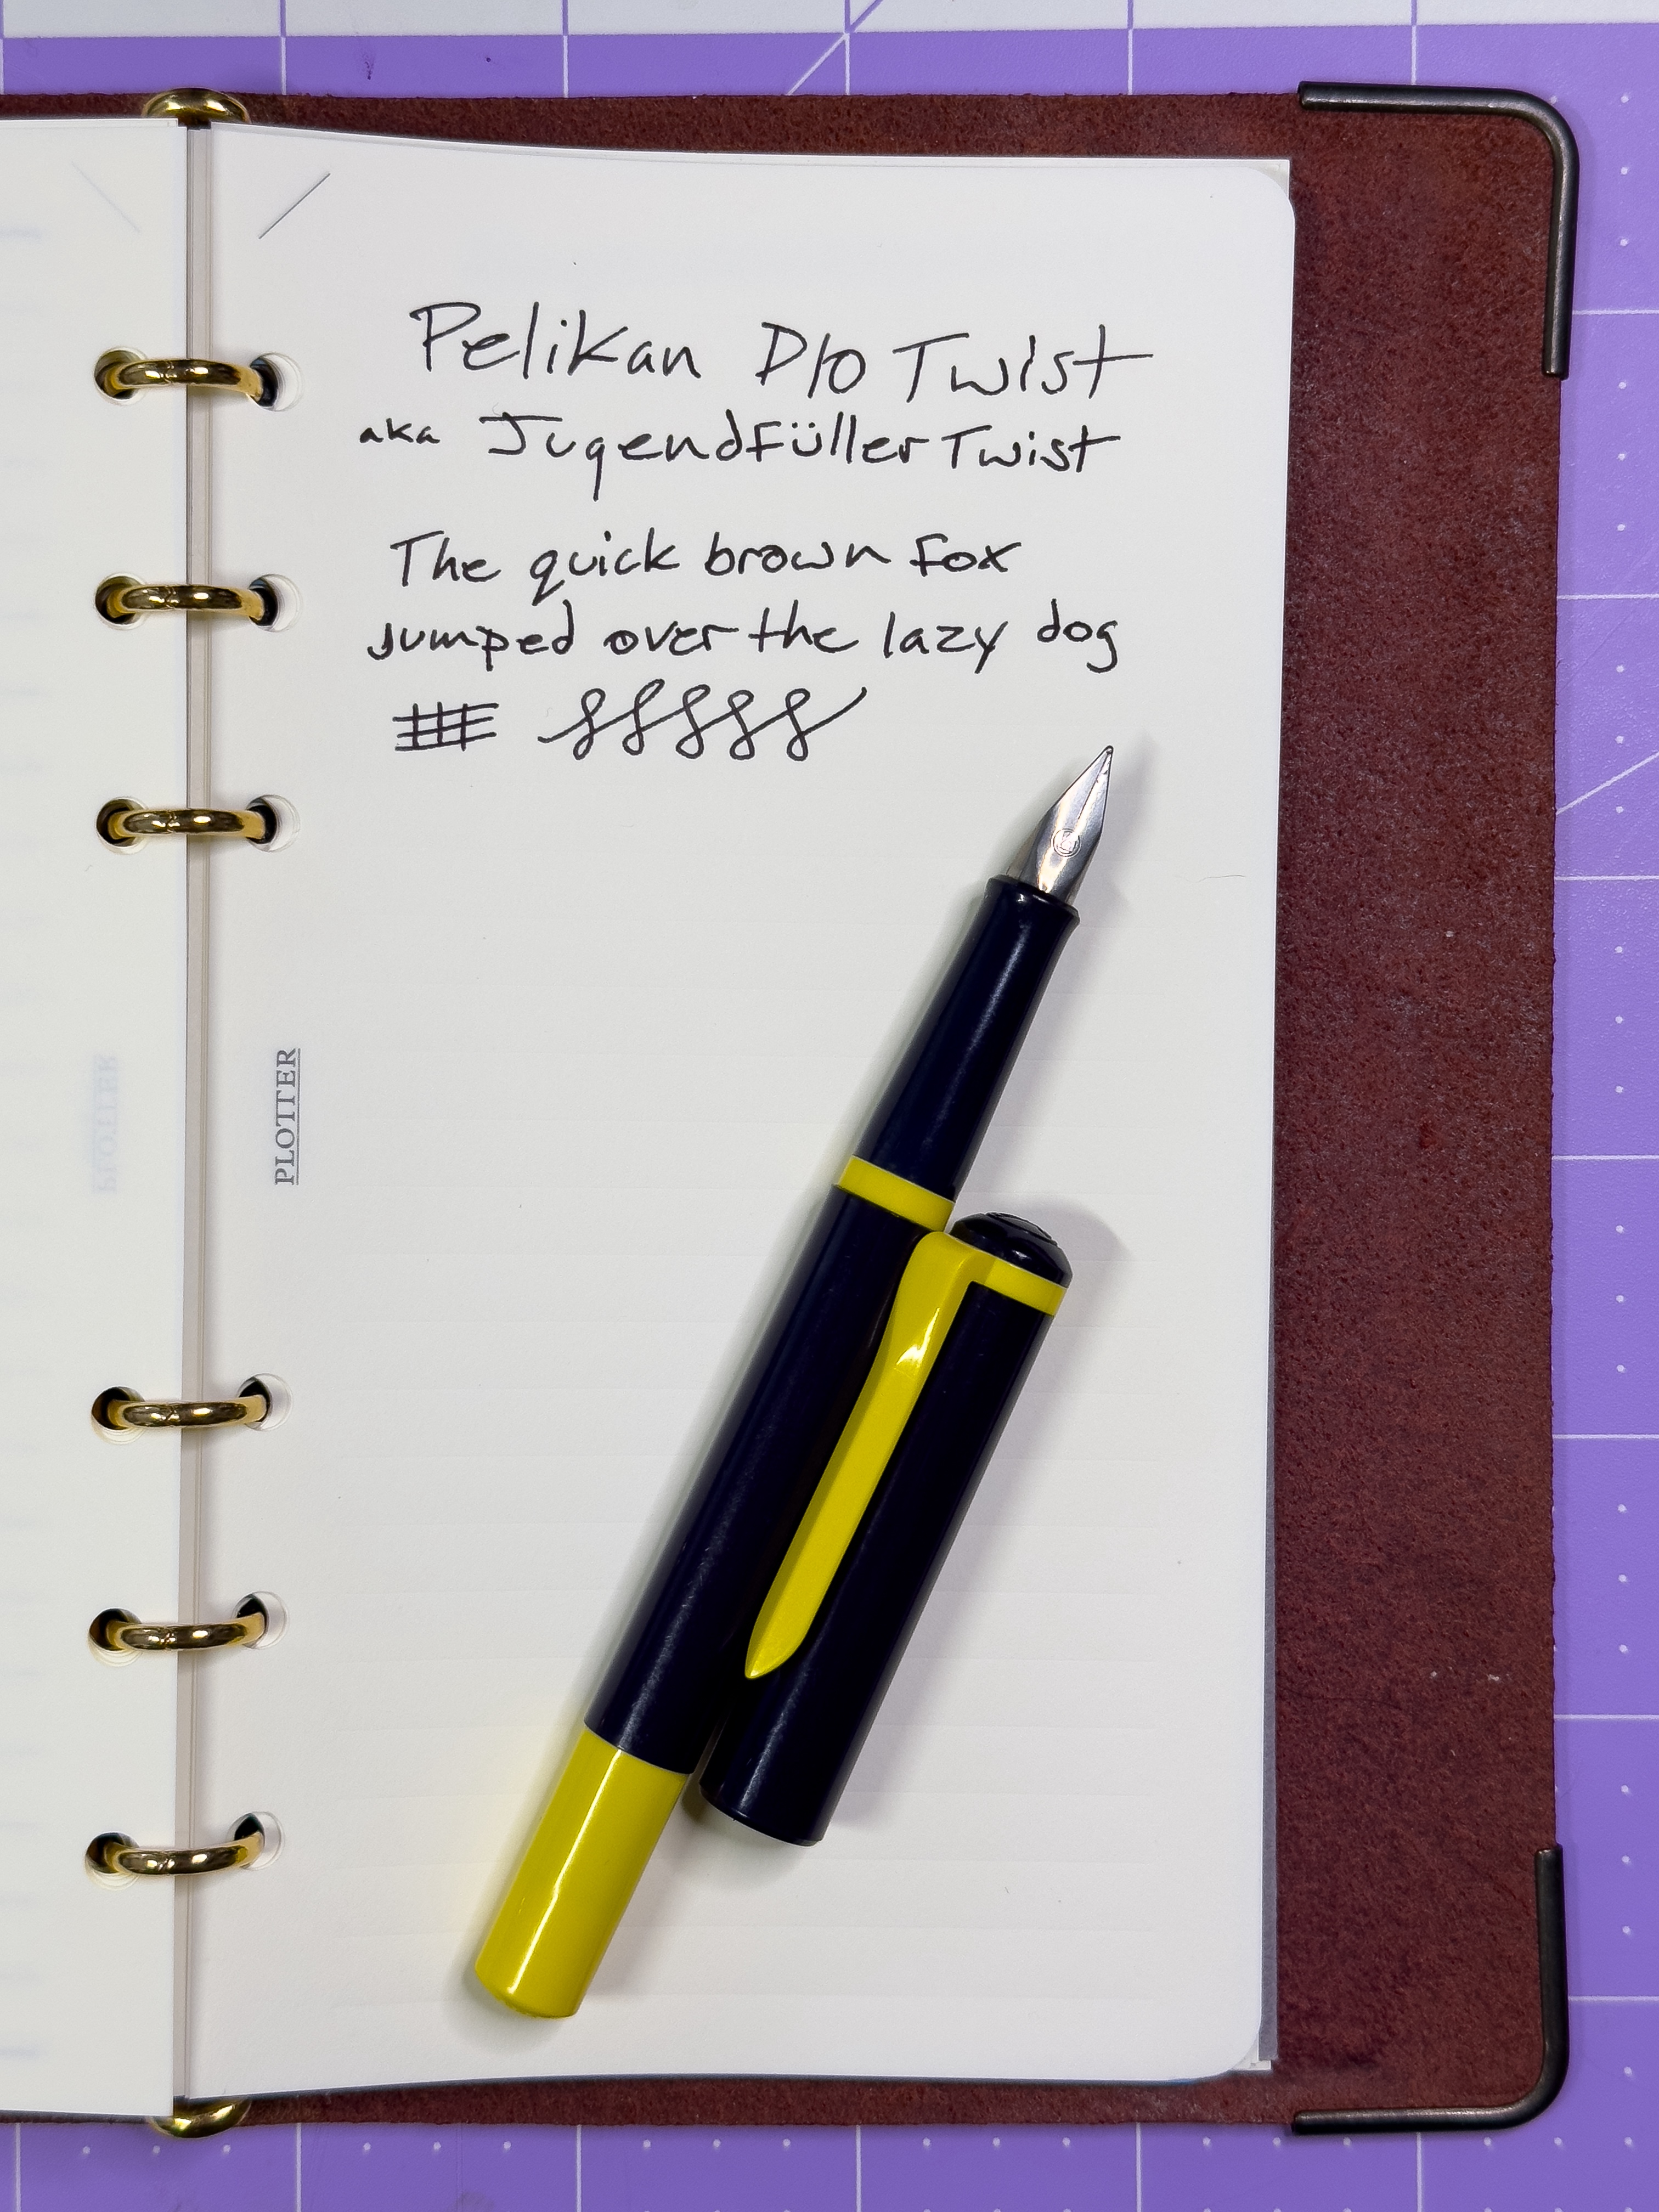 Pelikan P10 Twist
aka Jugendfüller Twist
The quick brown fox
jumped over the lazy dog
PLOTTER